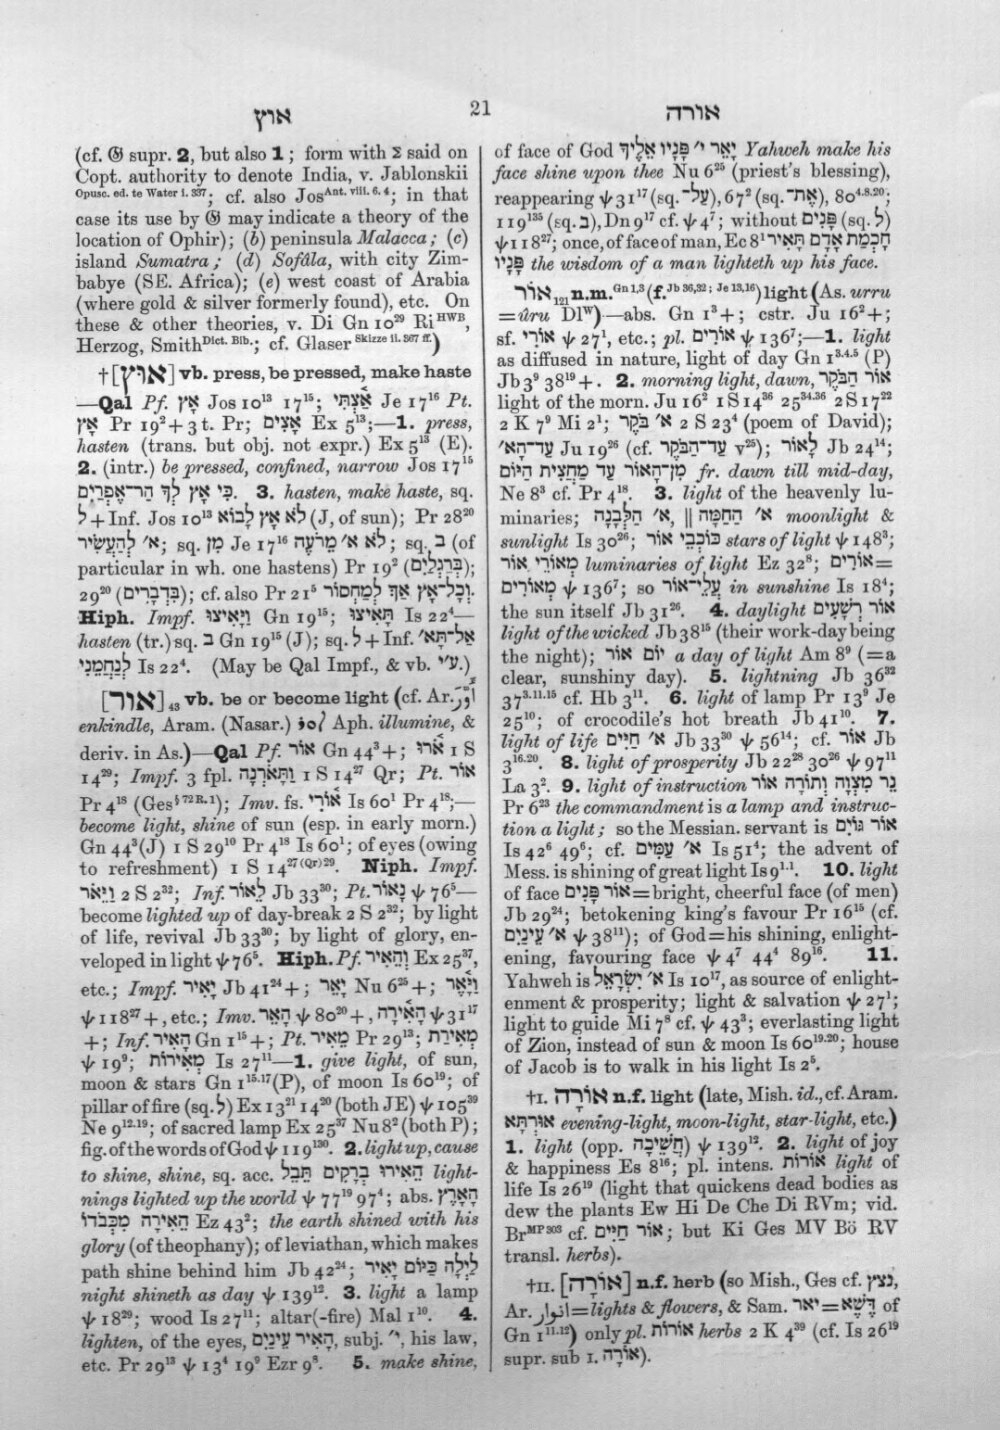 אוץ 21 אורה
(cf. 𝔊 supr. 2, but also 1; form with Σ said on
Copt. authority to denote India, v. Jablonskii
Opusc. ed. te Water i. 337; cf. also Jos Ant. viii. 6. 4; in that
case its use by 𝔊 may indicate a theory of the
location of Ophir); (b) peninsula Malacca; (c)
island Sumatra; (d) Sofâla, with city Zim-
babye (SE. Africa); (e) west coast of Arabia
(where gold & silver formerly found), etc. On
these & other theories, v. Di Gn 10²⁹ Ri HWB,
Herzog, Smith Dict. Bib.; cf. Glaser Skizze ii. 367 ff.)
†[אוּץ] vb. press, be pressed, make haste
—Qal Pf. אָץ Jos 10¹³ 17¹⁵; אַצְתִּי Je 17¹⁶ Pt.
אָץ Pr 19²+3 t. Pr; אָצִים Ex 5¹³;—1. press,
hasten (trans. but obj. not expr.) Ex 5¹³ (E).
2. (intr.) be pressed, confined, narrow Jos 17¹⁵
כִּי אָץ לְךָ הַר־אֶפְרַיִם. 3. hasten, make haste, sq.
ל+Inf. Jos 10¹³ לֹא אָץ לָבוֹא (J, of sun); Pr 28²⁰
א׳ לְהַעֲשִׁיר; sq. מִן Je 17¹⁶ לֹא א׳ מֵרֹעֶה; sq. ב (of
particular in wh. one hastens) Pr 19² (בְּרַגְלַיִם);
29²⁰ (בִּדְבָרִים); cf. also Pr 21⁵ וְכָל־אָץ אַךְ לְמַחְסוֹר.
Hiph. Impf. וַיָּאִיצוּ Gn 19¹⁵; תָּאִיצוּ Is 22⁴—
hasten (tr.) sq. ב Gn 19¹⁵ (J); sq. ל+Inf. אַל־תָּא׳
לְנַחֲמֵנִי Is 22⁴. (May be Qal Impf., & vb. ע״י.)
[אוֹר]₄₃ vb. be or become light (cf. Ar.
enkindle, Aram. (Nasar.) Aph. illumine, &
deriv. in As.)—Qal Pf. אוֹר Gn 44³+; אֹרוּ 1 S
14²⁹; Impf. 3 fpl. וַתָּאֹרְנָה 1 S 14²⁷ Qr; Pt. אוֹר
Pr 4¹⁸ (Ges §72 R. 1); Imv. fs. אוֹרִי Is 60¹ Pr 4¹⁸;—
become light, shine of sun (esp. in early morn.)
Gn 44³(J) 1 S 29¹⁰ Pr 4¹⁸ Is 60¹; of eyes (owing
to refreshment) 1 S 14²⁷ (Qr) ²⁹. Niph. Impf.
וַיֵּאֹר 2 S 2³²; Inf. לֵאוֹר Jb 33³⁰; Pt. נָאוֹר ψ 76⁵—
become lighted up of day-break 2 S 2³²; by light
of life, revival Jb 33³⁰; by light of glory, en-
veloped in light ψ 76⁵. Hiph. Pf. וְהֵאִיר Ex 25³⁷,
etc.; Impf. יָאִיר Jb 41²⁴+; יָאֵר Nu 6²⁵+; וַיָּאֶר
ψ 118²⁷+, etc.; Imv. הָאֵר ψ 80²⁰+, הָאִירָה ψ 31¹⁷
+; Inf. הָאִיר Gn 1¹⁵+; Pt. מֵאִיר Pr 29¹³; מְאִירַת
ψ 19⁹; מְאִירוֹת Is 27¹¹—1. give light, of sun,
moon & stars Gn 1¹⁵·¹⁷(P), of moon Is 60¹⁹; of
pillar of fire (sq. ל) Ex 13²¹ 14²⁰ (both JE) ψ 105³⁹
Ne 9¹²·¹⁹; of sacred lamp Ex 25³⁷ Nu 8² (both P);
fig. of the words of God ψ 119¹³⁰. 2. light up, cause
to shine, shine, sq. acc. הֵאִירוּ בְרָקִים תֵּבֵל light-
nings lighted up the world ψ 77¹⁹ 97⁴; abs. הָאָרֶץ
הֵאִירָה מִכְּבֹדוֹ Ez 43²; the earth shined with his
glory (of theophany); of leviathan, which makes
path shine behind him Jb 42²⁴; לַיְלָה כַּיּוֹם יָאִיר
night shineth as day ψ 139¹². 3. light a lamp
ψ 18²⁹; wood Is 27¹¹; altar(-fire) Mal 1¹⁰. 4.
lighten, of the eyes, הָאִיר עֵינַיִם, subj. י׳, his law,
etc. Pr 29¹³ ψ 13⁴ 19⁹ Ezr 9⁸. 5. make shine,
of face of God יָאֵר י׳ פָּנָיו אֵלֶיךָ Yahweh make his
face shine upon thee Nu 6²⁵ (priest's blessing),
reappearing ψ 31¹⁷ (sq. עַל־), 67² (sq. אֶת־), 80⁴·⁸·²⁰;
119¹³⁵ (sq. ב), Dn 9¹⁷ cf. ψ 4⁷; without פָּנִים (sq. ל)
ψ 118²⁷; once, of face of man, Ec 8¹ חָכְמַת אָדָם תָּאִיר
פָּנָיו the wisdom of a man lighteth up his face.
אוֹר₁₂₁ n.m. Gn 1,3 (f. Jb 36,32; Je 13,16) light (As. urru
=ûru Dl W)—abs. Gn 1³+; cstr. Ju 16²+;
sf. אוֹרִי ψ 27¹, etc.; pl. אוֹרִים ψ 136⁷;—1. light
as diffused in nature, light of day Gn 1³·⁴·⁵ (P)
Jb 3⁹ 38¹⁹+. 2. morning light, dawn, אוֹר הַבֹּקֶר
light of the morn. Ju 16² 1 S 14³⁶ 25³⁴·³⁶ 2 S 17²²
2 K 7⁹ Mi 2¹; א׳ בֹּקֶר 2 S 23⁴ (poem of David);
עַד־הָא׳ Ju 19²⁶ (cf. עַד־הַבֹּקֶר v²⁵); לָאוֹר Jb 24¹⁴;
מִן־הָאוֹר עַד מַחֲצִית הַיּוֹם fr. dawn till mid-day,
Ne 8³ cf. Pr 4¹⁸. 3. light of the heavenly lu-
minaries; א׳ הַחַמָּה ‖, א׳ הַלְּבָנָה moonlight &
sunlight Is 30²⁶; כּוֹכְבֵי אוֹר stars of light ψ 148³;
מְאוֹרֵי אוֹר luminaries of light Ez 32⁸; אוֹרִים=
מְאוֹרִים ψ 136⁷; so עֲלֵי־אוֹר in sunshine Is 18⁴;
the sun itself Jb 31²⁶. 4. daylight אוֹר רְשָׁעִים
light of the wicked Jb 38¹⁵ (their work-day being
the night); יוֹם אוֹר a day of light Am 8⁹ (=a
clear, sunshiny day). 5. lightning Jb 36³²
37³·¹¹·¹⁵ cf. Hb 3¹¹. 6. light of lamp Pr 13⁹ Je
25¹⁰; of crocodile's hot breath Jb 41¹⁰. 7.
light of life א׳ חַיִּים Jb 33³⁰ ψ 56¹⁴; cf. אוֹר Jb
3¹⁶·²⁰. 8. light of prosperity Jb 22²⁸ 30²⁶ ψ 97¹¹
La 3². 9. light of instruction נֵר מִצְוָה וְתוֹרָה אוֹר
Pr 6²³ the commandment is a lamp and instruc-
tion a light; so the Messian. servant is אוֹר גּוֹיִם
Is 42⁶ 49⁶; cf. א׳ עַמִּים Is 51⁴; the advent of
Mess. is shining of great light Is 9¹·¹. 10. light
of face אוֹר פָּנִים=bright, cheerful face (of men)
Jb 29²⁴; betokening king's favour Pr 16¹⁵ (cf.
א׳ עֵינַיִם ψ 38¹¹); of God=his shining, enlight-
ening, favouring face ψ 4⁷ 44⁴ 89¹⁶. 11.
Yahweh is א׳ יִשְׂרָאֵל Is 10¹⁷, as source of enlight-
enment & prosperity; light & salvation ψ 27¹;
light to guide Mi 7⁸ cf. ψ 43³; everlasting light
of Zion, instead of sun & moon Is 60¹⁹·²⁰; house
of Jacob is to walk in his light Is 2⁵.
†I. אוֹרָה n.f. light (late, Mish. id., cf. Aram.
אוּרְתָּא evening-light, moon-light, star-light, etc.)
1. light (opp. חֲשֵׁיכָה) ψ 139¹². 2. light of joy
& happiness Es 8¹⁶; pl. intens. אוֹרוֹת light of
life Is 26¹⁹ (light that quickens dead bodies as
dew the plants Ew Hi De Che Di RVm; vid.
Br MP 303 cf. אוֹר חַיִּים; but Ki Ges MV Bö RV
transl. herbs).
†II. [אוֹרָה] n.f. herb (so Mish., Ges cf. נצץ,
Ar. انوار=lights & flowers, & Sam. יאר=דֶּשֶׁא of
Gn 1¹¹·¹²) only pl. אוֹרוֹת herbs 2 K 4³⁹ (cf. Is 26¹⁹
supr. sub I. אוֹרָה).